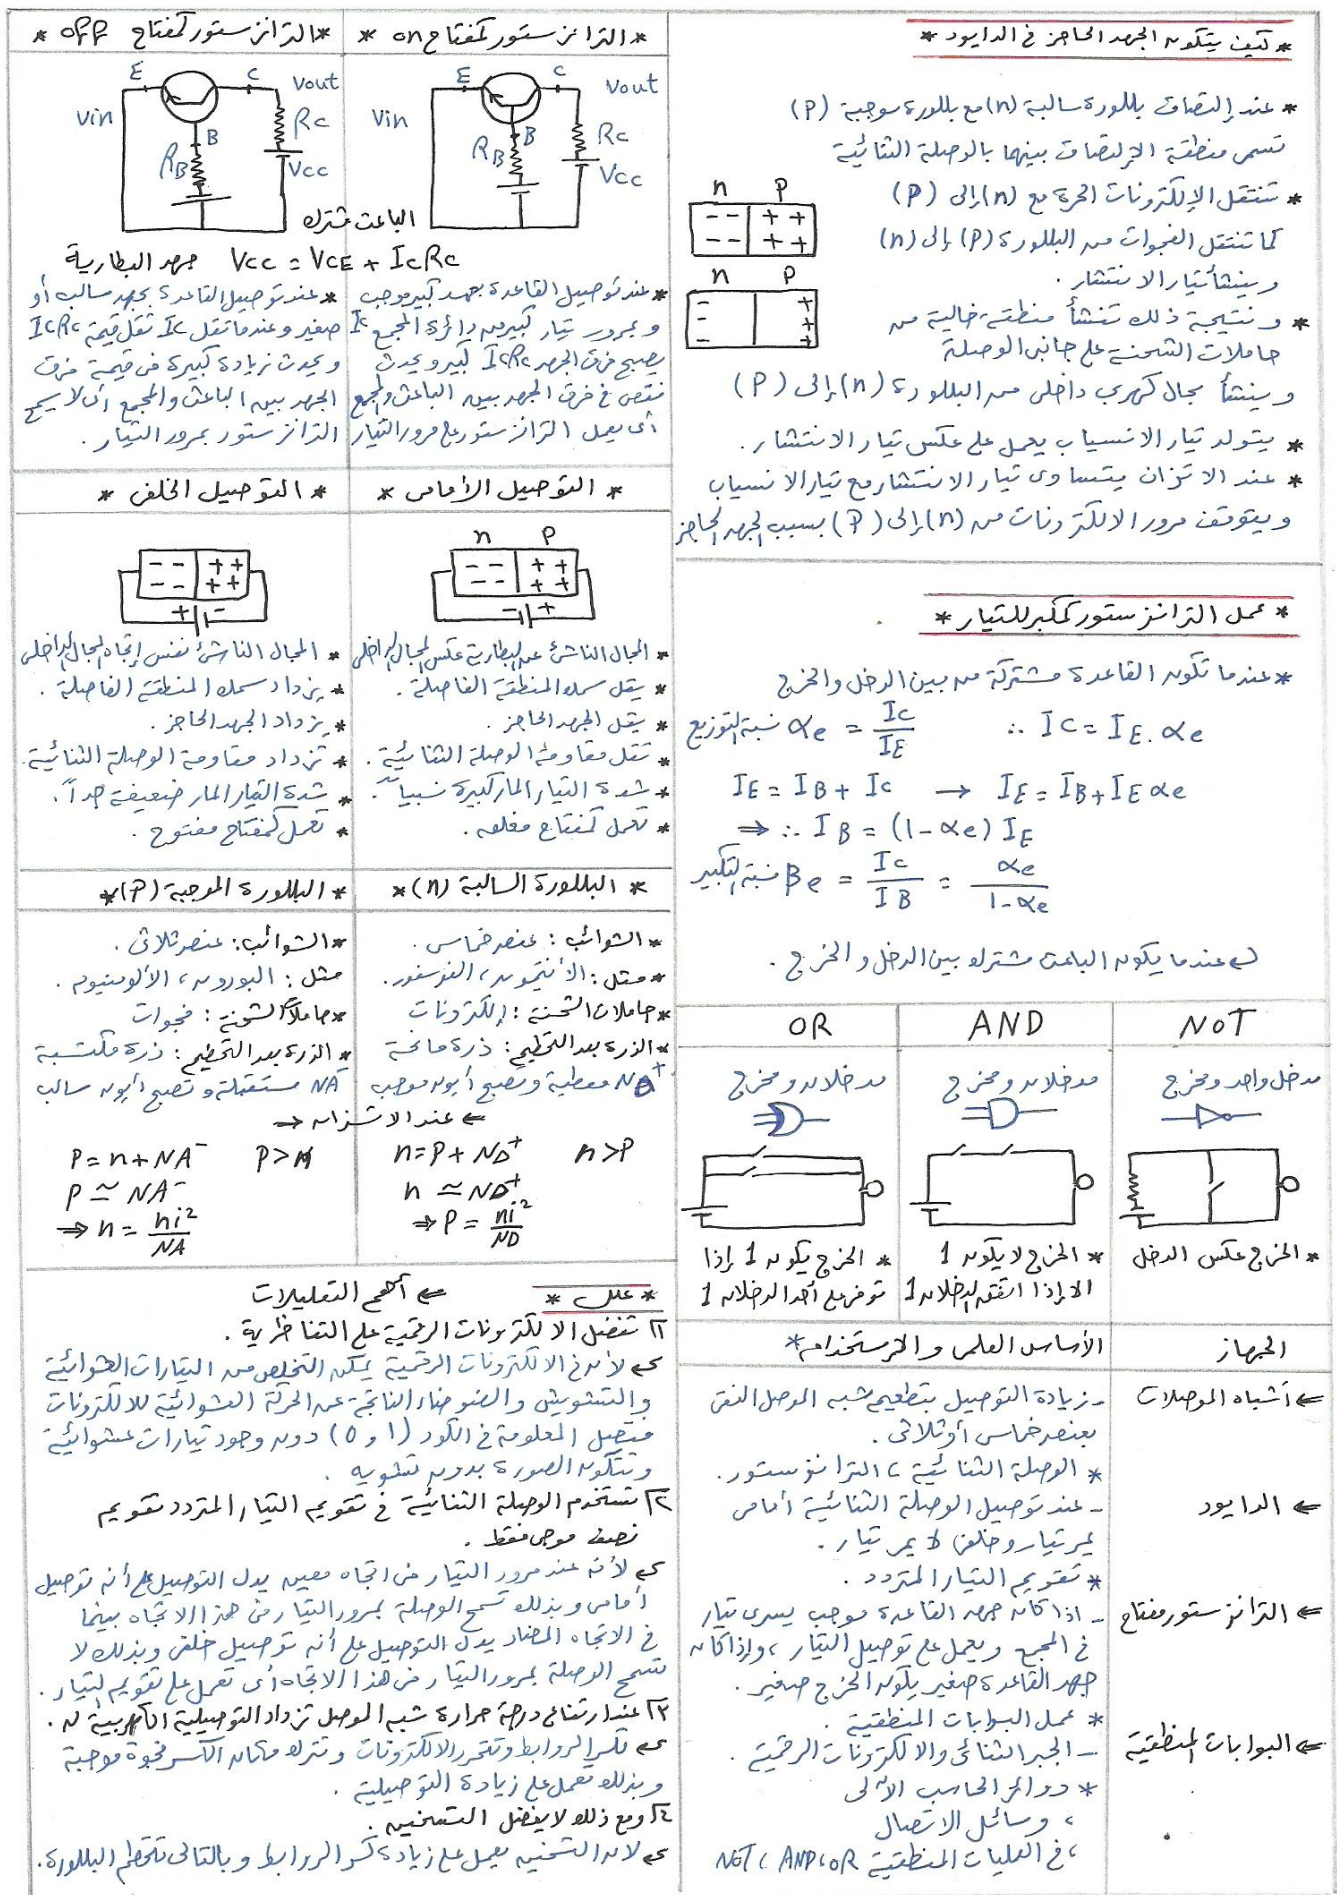 * كيف يتكون الجهد الحاجز في الدايود *
* عند إلتصاق بللورة سالبة (n) مع بللورة موجبة (P)
تسمى منطقة الإلتصاق بينهما بالوصلة الثنائية
* تنتقل الإلكترونات الحرة مع (n) إلى (P)
كما تنتقل الفجوات من البللورة (P) إلى (n)
وينشأ تيار الانتشار .
n P
- - + +
- - + +
n P
- +
+
- +
* ونتيجة ذلك تنشأ منطقة خالية من
حاملات الشحنة على جانبى الوصلة
وينشأ مجال كهربي داخلى من البللورة (n) إلى (P)
* يتولد تيار الانسياب يعمل على عكس تيار الانتشار .
* عند الاتزان يتساوى تيار الانتشار مع تيار الانسياب
ويتوقف مرور الالكترونات من (n) إلى (P) بسبب الجهد الحاجز
* عمل الترانزستور كمكبر للتيار *
* عندما تكون القاعدة مشتركة من بين الدخل والخرج
نسبة التوزيع αe = Ic / IE ∴ Ic = IE . αe
IE = IB + Ic → IE = IB + IE αe
⇒ ∴ IB = (1 - αe) IE
نسبة التكبير Be = Ic / IB = αe / 1-αe
عندما يكون الباعث مشترك بين الدخل والخرج .
NOT AND OR
مدخل واحد ومخرج
مدخلان ومخرج
مدخلان ومخرج
* الخرج عكس الدخل
* الخرج لا يكون 1
الا إذا اتفق الدخلان 1
* الخرج يكون 1 إذا
توفر على أحد الدخلان 1
الجهاز
الأساس العلمى والاستخدام *
← أشباه الموصلات
- زيادة التوصيل بتطعيم شبه الموصل النقى
بعنصر خماسى أو ثلاثى .
* الوصلة الثنائية ، الترانزستور .
← الدايود
- عند توصيل الوصلة الثنائية أمامى
يمر تيار وخلفى لا يمر تيار .
* تقويم التيار المتردد .
← الترانزستور مفتاح
- اذا كان جهد القاعدة موجب يسرى تيار
فى المجمع ويعمل على توصيل التيار ، وإذا كان
جهد القاعدة صغير يكون الخرج صغير .
* عمل البوابات المنطقية .
← البوابات المنطقية
- الجبر الثنائى والالكترونات الرقمية .
* دوائر الحاسب الآلى
، وسائل الاتصال
، فى العمليات المنطقية NOT ، AND ، OR
* الترانزستور كمفتاح on *
E C
Vout
Vin
B
Rc
RB
Vcc
* الترانزستور كمفتاح OFF *
E C
Vout
Vin
B
Rc
RB
Vcc
الباعث مشترك
جهد البطارية Vcc = VCE + IcRc
* عند توصيل القاعدة بجهد كبير موجب
و بمرور تيار كبير من دائرة المجمع Ic
يصبح فرق الجهد IcRc كبير ويحدث
نقص فى فرق الجهد بين الباعث والمجمع
أى يعمل الترانزستور على مرور التيار
* عند توصيل القاعدة بجهد سالب أو
صغير وعندما تقل Ic تقل قيمة IcRc
ويحدث زيادة كبيرة فى قيمة فرق
الجهد بين الباعث والمجمع أى لا يسمح
الترانزستور بمرور التيار .
* التوصيل الأمامى *
n P
- - + +
- - + +
- +
* المجال الناشئ عن البطارية عكس المجال الداخلى
* يقل سمك المنطقة الفاصلة .
* يقل الجهد الحاجز .
* تقل مقاومة الوصلة الثنائية .
* شدة التيار المار كبيرة نسبياً .
* تعمل كمفتاح مغلق .
* التوصيل الخلفى *
- - + +
- - + +
+ -
* المجال الناشئ نفس إتجاه المجال الداخلى
* يزداد سمك المنطقة الفاصلة .
* يزداد الجهد الحاجز .
* تزداد مقاومة الوصلة الثنائية .
* شدة التيار المار ضعيفة جداً .
* تعمل كمفتاح مفتوح .
* البللورة السالبة (n) *
* الشوائب : عنصر خماسى .
* مثل : الأنتيمون ، الفوسفور .
* حاملات الشحنة : إلكترونات
* الذرة بعد التحطيم : ذرة مانحة
ND+ معطية وتصبح أيون موجب
* البللورة الموجبة (P) *
* الشوائب : عنصر ثلاثى .
مثل : البورون ، الألومنيوم .
* حاملات الشحنة : فجوات
* الذرة بعد التحطيم : ذرة مكتسبة
NA- مستقبلة وتصبح أيون سالب
← عند الاتزان →
n = P + ND+ n > P
n ≃ ND+
⇒ P = ni² / ND
P = n + NA- P > n
P ≃ NA-
⇒ n = ni² / NA
* علل * ← أهم التعليلات
١) تفضل الالكترونات الرقمية على التناظرية .
لأن فى الالكترونات الرقمية يمكن التخلص من التيارات العشوائية
والتشويش والضوضاء الناتجة عن الحركة العشوائية للالكترونات
فتصل المعلومة فى الكود (1 و 0) دون وجود تيارات عشوائية
وتتكون الصورة بدون تشويه .
٢) تستخدم الوصلة الثنائية فى تقويم التيار المتردد تقويم
نصف موجى فقط .
لأنه عند مرور التيار فى اتجاه معين يدل التوصيل على أنه توصيل
أمامى وبذلك تسمح الوصلة بمرور التيار فى هذا الاتجاه بينما
فى الاتجاه المضاد يدل التوصيل على أنه توصيل خلفى وبذلك لا
تسمح الوصلة بمرور التيار فى هذا الاتجاه أى تعمل على تقويم التيار .
٣) عند ارتفاع درجة حرارة شبه الموصل تزداد التوصيلية الكهربية له .
تكسر الروابط وتتحرر الالكترونات وتترك مكان الكسر فجوة موجبة
وبذلك تعمل على زيادة التوصيلية .
٤) ومع ذلك لا يفضل التسخين .
لان التسخين يعمل على زيادة كسر الروابط وبالتالى تتحطم البللورة .